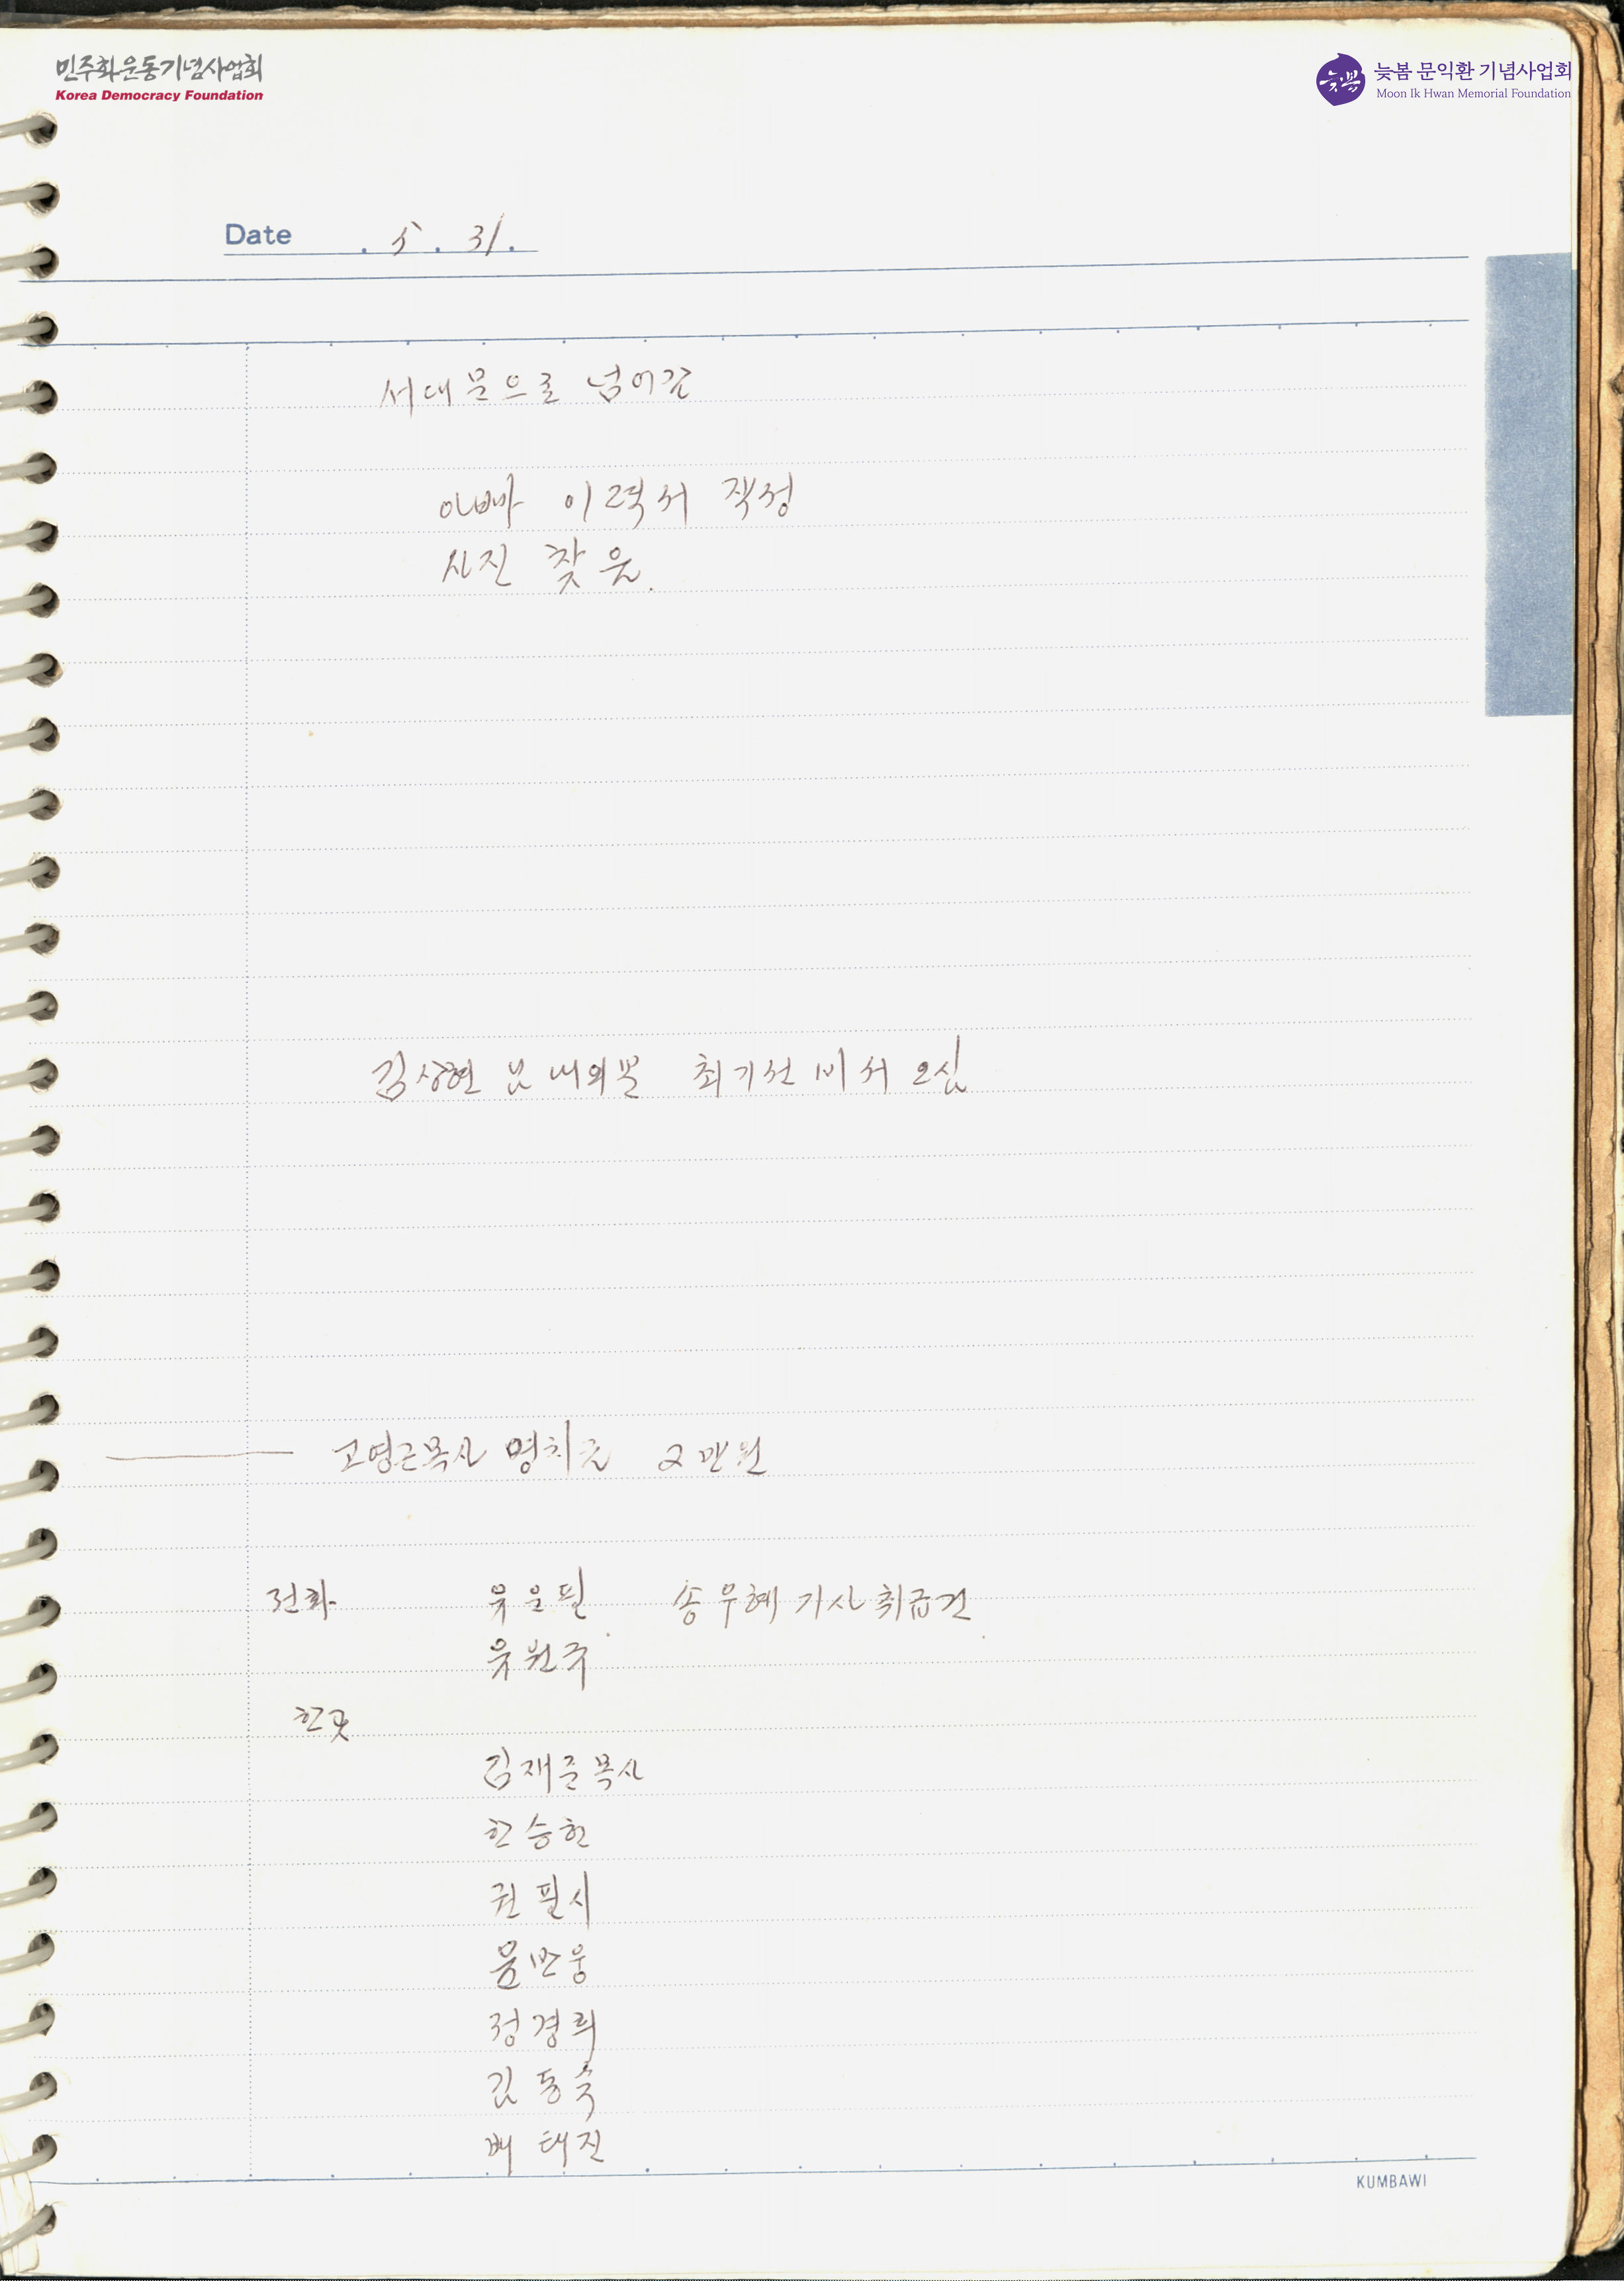 민주화운동기념사업회
Korea Democracy Foundation
늦봄
늦봄 문익환 기념사업회
Moon Ik Hwan Memorial Foundation
Date . 5 . 31 .
서대문으로 넘어감
아빠 이력서 작성
사진 찾음.
김상현 님 내외분 최기선 비서 오심
고영근목사 영치금 2만원
전화 유운필 송우혜 기사 취급건
유원규
한국
김재준목사
한승헌
권필시
문반웅
정경희
김동숙
배태진
KUMBAWI